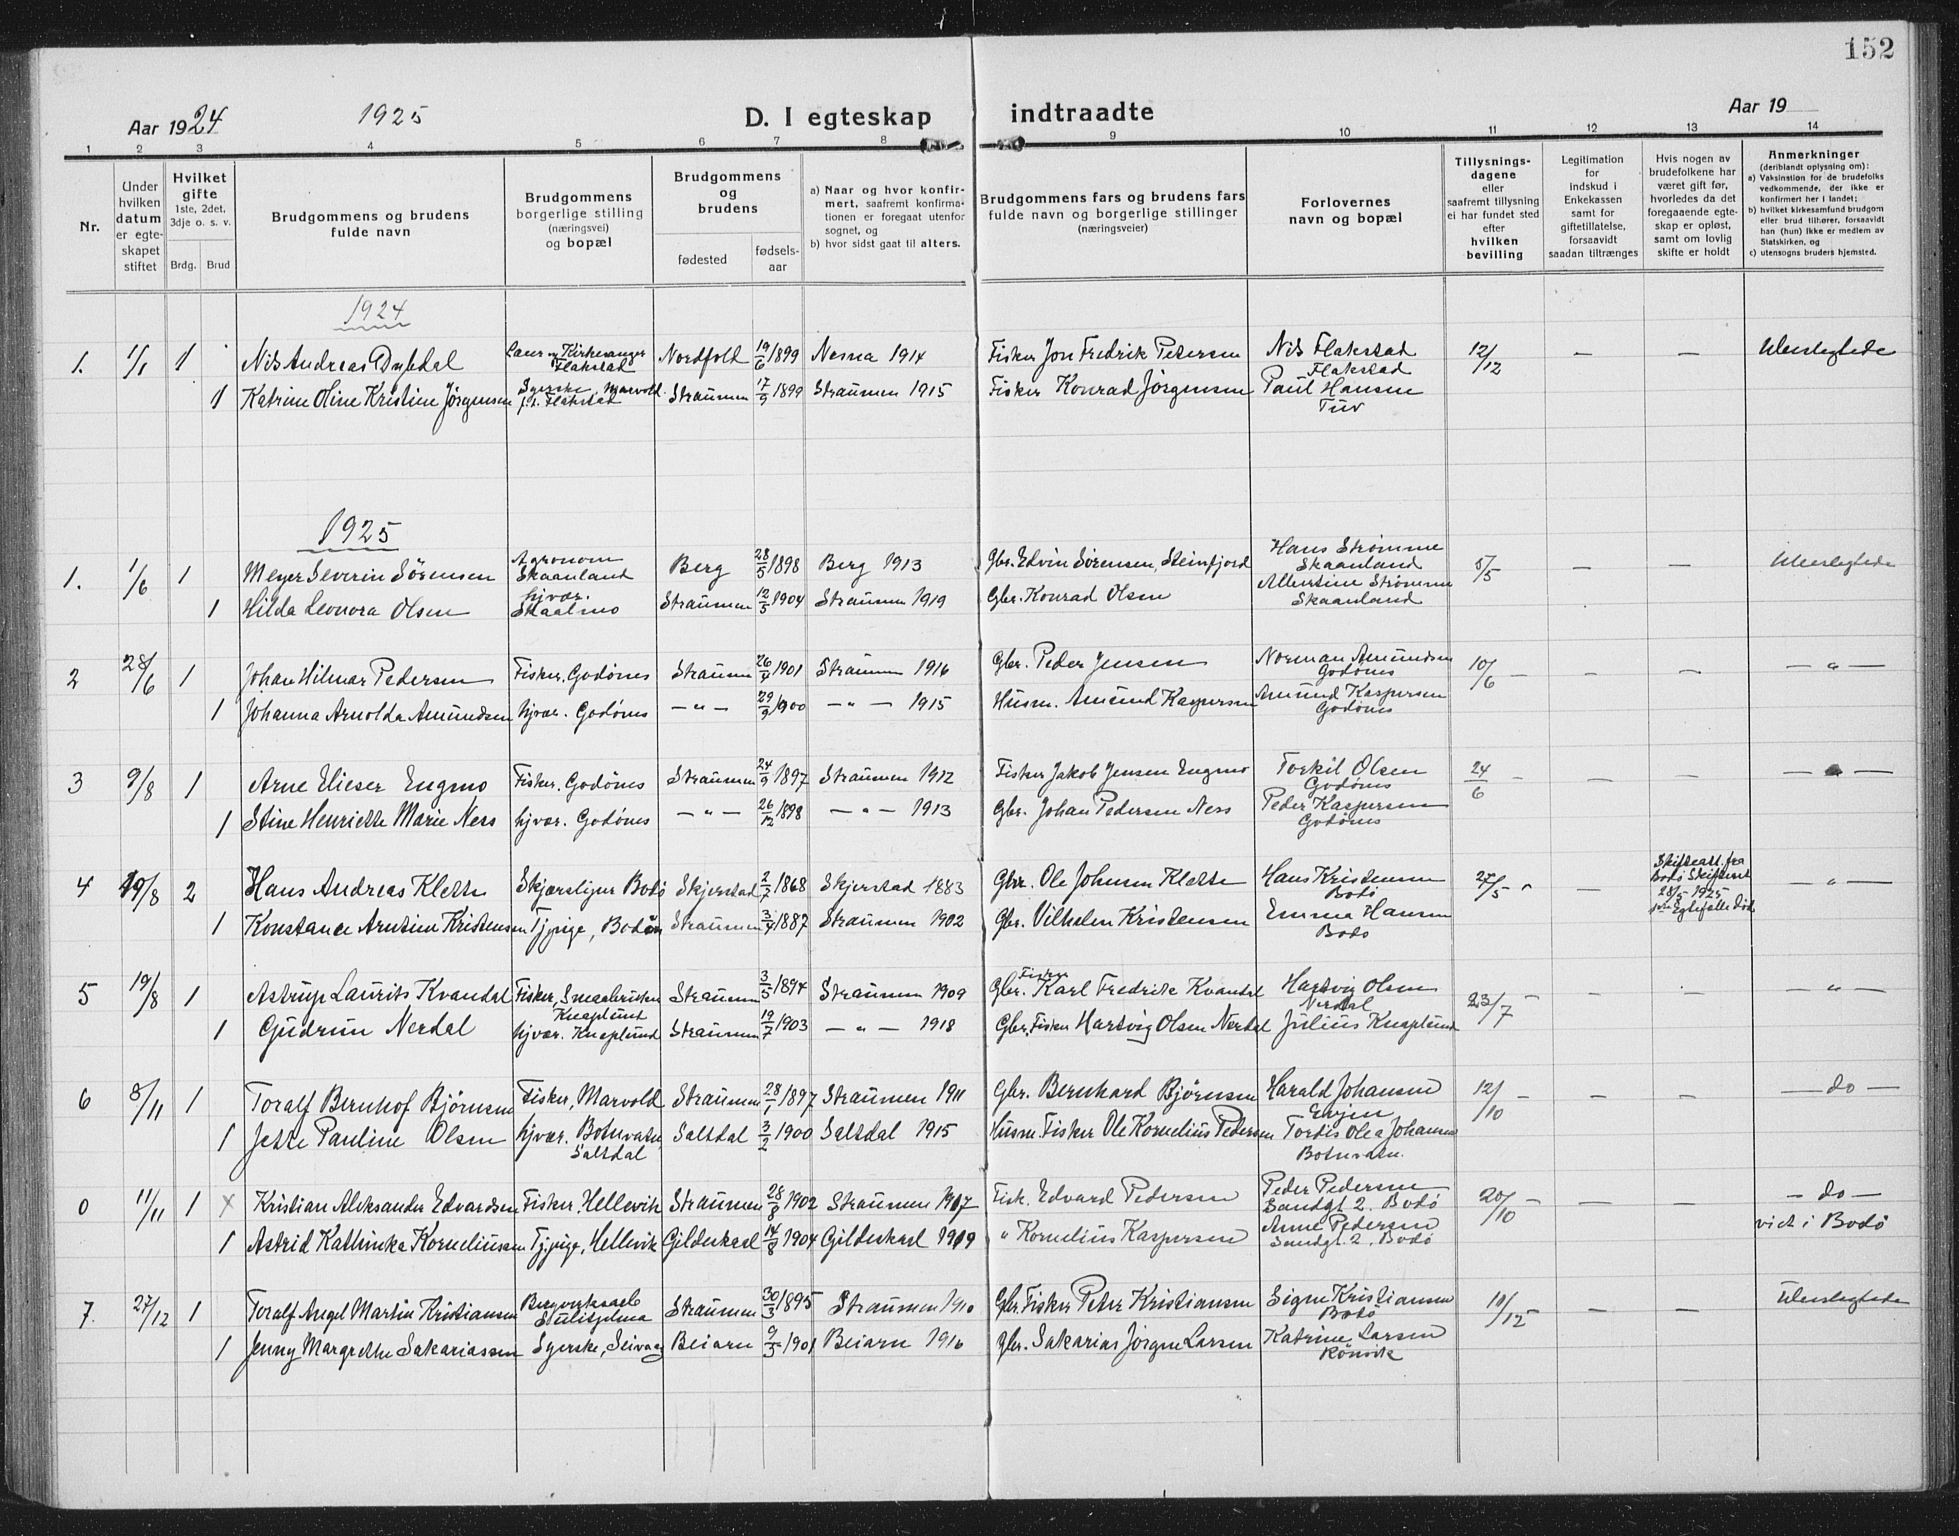 152
Aar 1924 1925 D. I egteskap indtraadte Aar 19
1 2 3 4 5 6 7 8 9 10 11 12 13 14
Nr.
Under hvilken datum er egteskapet stiftet
Hvilket gifte 1ste, 2det, 3dje o. s. v.
Brdg. Brud
Brudgommens og brudens fulde navn
Brudgommens borgerlige stilling (næringsvei) og bopæl
Brudgommens og brudens
fødested fødselsaar
a) Naar og hvor konfirmert, saafremt konfirmationen er foregaat utenfor sognet, og
b) hvor sidst gaat til alters.
Brudgommens fars og brudens fars fulde navn og borgerlige stillinger (næringsveier)
Forlovernes navn og bopæl
Tillysningsdagene eller saafremt tillysning ei har fundet sted efter hvilken bevilling
Legitimation for indskud i Enkekassen samt for giftetillatelse, forsaavidt saadan tiltrænges
Hvis nogen av brudefolkene har været gift før, hvorledes da det foregaaende egteskap er opløst, samt om lovlig skifte er holdt
Anmerkninger (deriblandt oplysning om):
a) Vaksination for de brudefolks vedkommende, der ikke er konfirmert her i landet;
b) hvilket kirkesamfund brudgom eller brud tilhører, forsaavidt han (hun) ikke er medlem av Statskirken, og
c) utensogns bruders hjemsted.
1924
1. 1/1 1 Nils Andreas Dybdal Lærer og Kirkesanger Flakstad Nordfold 19/6 1899 Nesna 1914 Fisker Jon Fredrik Petersen Nils Flakstad Flakstad 12/12 — — Ubeslegtede
1 Katrine Oline Kristine Jørgensen Syerske, Marvold f.t. Flakstad Straumen 17/9 1899 Straumen 1915 Fisker Konrad Jørgensen Paul Hansen Tuv
1925
1. 1/6 1 Meyer Severin Sørensen Agronom Skaanland Berg 28/5 1898 Berg 1913 Gbr. Edvin Sørensen, Steinfjord Hans Strømme Skaanland 5/5 — — Ubeslegtede
1 Hilda Leonora Olsen hjvær. Skaalmo Straumen 12/5 1904 Straumen 1919 Gbr. Konrad Olsen Albertine Strømme Skaanland
2 28/6 1 Johan Hilmar Pedersen Fisker, Godønes Straumen 26/4 1901 Straumen 1916 Gbr. Peder Jensen Norman Amundsen Godønes 10/6 — — — — " —
1 Johanna Arnolda Amundsen hjvær. Godønes — " — 29/9 1900 — " — 1915 Husm. Amund Kaspersen Amund Kaspersen Godønes
3 9/8 1 Arne Elieser Engmo Fisker, Godønes Straumen 24/9 1897 Straumen 1912 Fisker Jakob Jensen Engmo Torkil Olsen Godønes 24/6 — — — — " —
1 Stine Henriette Marie Ness hjvær. Godønes — " — 26/12 1898 — " — 1913 Gbr. Johan Pedersen Ness Peder Kaspersen Godønes
4 19/8 2 Hans Andreas Klette Skjærsliper Bodø Skjerstad 2/7 1868 Skjerstad 1883 Gbr. Ole Johnsen Klette Hans Kristensen Bodø 27/5 " — Skifteatt. fra Bodø Skifteret 28/5 1925 Egtefelle død — " —
1 Konstance Arntine Kristensen Tjpige, Bodøn Straumen 3/4 1887 Straumen 1902 Gbr. Vilhelm Kristensen Emma Hansen Bodø
5 19/8 1 Astrup Laurits Kvandal Fisker, Smaabruker Knaplund Straumen 3/5 1894 Straumen 1909 Gbr. Fisker Karl Fredrik Kvandal Hartvig Olsen Nerdal 23/7 — — — — " —
1 Gudrun Nerdal hjvær. Knaplund Straumen 19/7 1903 — " — 1918 Gbr. Fisker Hartvig Olsen Nerdal Julius Knaplund
6 8/11 1 Toralf Bernhof Bjørnsen Fisker, Marvold Straumen 28/1 1897 Straumen 1911 Gbr. Bernhard Bjørnsen Harald Johansen Evjen 12/10 — — — — do —
1 Jette Pauline Olsen hjvær. Botnvatn, Saltdal Saltdal 3/2 1900 Saltdal 1915 Husm. Fisker Ole Kornelius Pedersen Tordis Olea Johansen Botnvatn.
0 11/11 1 x Kristian Aleksander Edvardsen Fisker, Hellevik Straumen 28/8 1902 Straumen 1917 Fisk. Edvard Pedersen Peder Pedersen Sandgt 2, Bodø 20/10 — — — — do —
1 Astrid Kathinka Korneliussen Tjpige, Hellevik Gildeskaal 14/8 1904 Gildeskaal 1919 " Kornelius Kaspersen Anne Pedersen Sandgt. 2. Bodø viet i Bodø
7. 27/12 1 Toralf Angel Martin Kristiansen Bergverksarb Sulitjelma Straumen 30/3 1895 Straumen 1910 Gbr. Fisker Peter Kristiansen Signe Kristiansen Bodø 10/12 — — Ubeslegtede
1 Jenny Margrethe Sakariassen Syerske, Seivaag Beiarn 9/3 1901 Beiarn 1916 Gbr. Sakarias Jørgen Larsen Katrine Larsen Rønvik